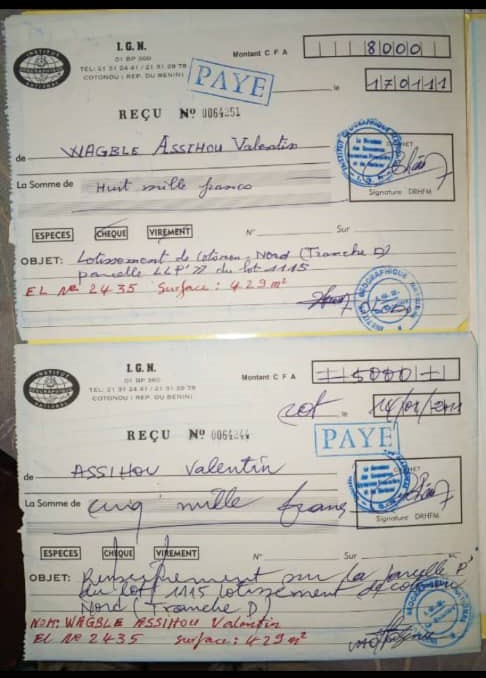 INSTITUT GEOGRAPHIQUE NATIONAL
I.G.N.
01 BP 360
TEL: 21 31 24 41 / 21 31 29 78
COTONOU ( REP. DU BENIN)
Montant C F A
8000
PAYE
le 170111
REÇU Nº 0064351
de WAGBLE ASSIHOU Valentin
La Somme de Huit mille francs
CACHET
Signature DRHFM
ESPECES CHEQUE VIREMENT Nº Sur
OBJET: Lotissement de Cotonou-Nord (Tranche D)
parcelle du lot 1115
EL Nº 2435 Surface: 429 m²
INSTITUT GEOGRAPHIQUE NATIONAL
I.G.N.
01 BP 360
TEL: 21 31 24 41 / 21 31 29 78
COTONOU ( REP. DU BENIN)
Montant C F A
5000
cot, le 14/01/2011
PAYE
REÇU Nº 0064344
de ASSIHOU Valentin
La Somme de cinq mille francs
CACHET
Signature DRHFM
ESPECES CHEQUE VIREMENT Nº Sur
OBJET: Renseignement sur la parcelle P'
du lot 1115 lotissement de cotonou
Nord (Tranche D)
NOM: WAGBLE ASSIHOU Valentin
EL Nº 2435 surface: 429 m²